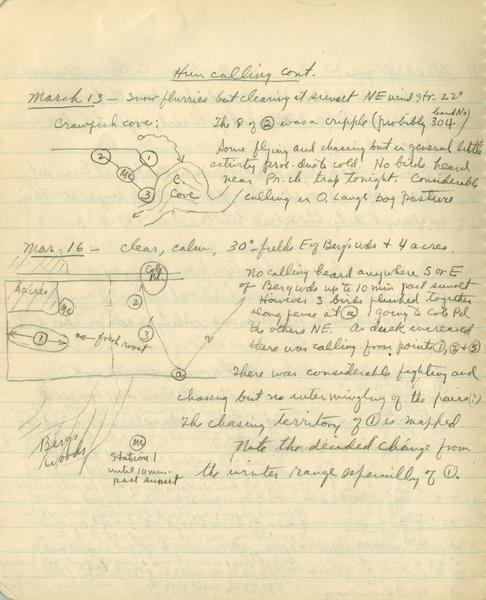 Hun calling cont.
March 13 - Snow flurries but clearing at sunset NE wind str. 22°
Crawfish cove:
The P of ② was a cripple (probably 304) band No
Some flying and chasing but in general little
activity prob. due to cold. No birds heard
near Pr. ch. trap tonight. Considerable
calling in O. Lange bog pasture
② ① Me ③ C. Cove
Mar. 16 - clear, calm, 30° - fields E of Berg's wds + 4 acres.
No calling heard anywhere S or E
of Berg wds up to 10 min past sunset
However 3 birds flushed together
along fence at ⓐ 1 going to Cole Pd
the others NE. As dusk increased
there was calling from points ①, ② + ③
4 acres Me ① find roost Cole Pd ② ③ a
There was considerable fighting and
chasing but no intermingling of the pairs(?)
The chasing territory of ① is mapped
Note the decided change from
the winter range especially of ①.
Berg's
Woods
Me
Station 1
until 10 min.
past sunset